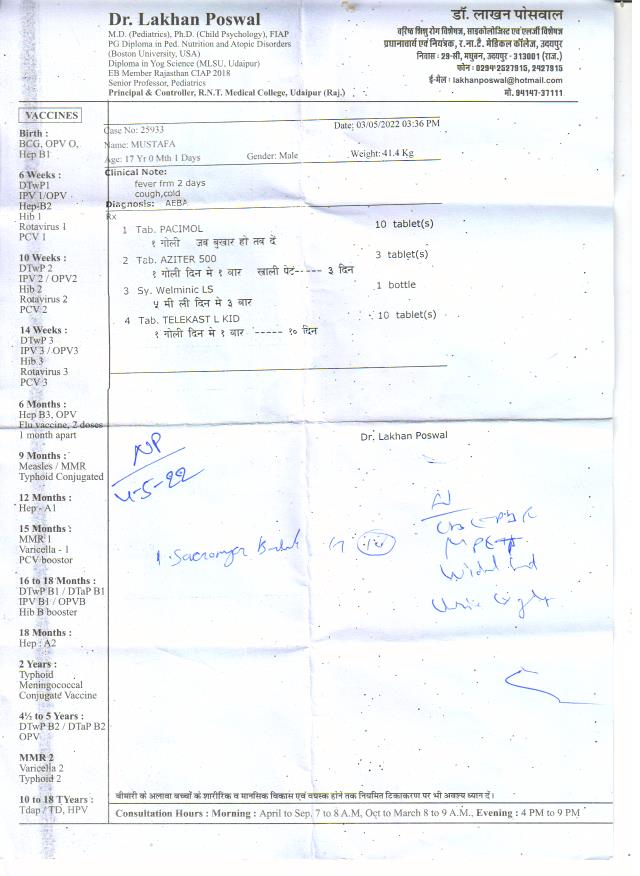 Dr. Lakhan Poswal
M.D. (Pediatrics), Ph.D. (Child Psychology), FIAP
PG Diploma in Ped. Nutrition and Atopic Disorders
(Boston University, USA)
Diploma in Yog Science (MLSU, Udaipur)
EB Member Rajasthan CIAP 2018
Senior Professor, Pediatrics
Principal & Controller, R.N.T. Medical College, Udaipur (Raj.)
डॉ. लाखन पोसवाल
वरिष्ठ शिशु रोग विशेषज्ञ, साइकोलोजिस्ट एवं एलर्जी विशेषज्ञ
प्रधानाचार्य एवं नियंत्रक, र.ना.टै. मेडिकल कॉलेज, उदयपुर
निवास : 29-सी, मधुवन, उदयपुर - 313001 (राज.)
फोन : 0294 2527815, 2427815
ई-मैल : lakhanposwal@hotmail.com
मो. 94147-37111
VACCINES
Birth :
BCG, OPV O,
Hep B1
6 Weeks :
DTwP1
IPV 1/OPV
Hep-B2
Hib 1
Rotavirus 1
PCV 1
10 Weeks :
DTwP 2
IPV 2 / OPV2
Hib 2
Rotavirus 2
PCV 2
14 Weeks :
DTwP 3
IPV 3 / OPV3
Hib 3
Rotavirus 3
PCV 3
6 Months :
Hep B3, OPV
Flu vaccine, 2 doses
1 month apart
9 Months :
Measles / MMR
Typhoid Conjugated
12 Months :
Hep - A1
15 Months :
MMR 1
Varicella - 1
PCV boostor
16 to 18 Months :
DTwP B1 / DTaP B1
IPV B1 / OPVB
Hib B booster
18 Months :
Hep : A2
2 Years :
Typhoid
Meningococcal
Conjugate Vaccine
4½ to 5 Years :
DTwP B2 / DTaP B2
OPV
MMR 2
Varicella 2
Typhoid 2
10 to 18 TYears :
Tdap / TD, HPV
Case No: 25933 Date: 03/05/2022 03:36 PM
Name: MUSTAFA
Age: 17 Yr 0 Mth 1 Days Gender: Male Weight: 41.4 Kg
Clinical Note:
fever frm 2 days
cough,cold
Diagnosis: AEBA
Rx
1 Tab. PACIMOL 10 tablet(s)
१ गोली जब बुखार हो तब दें
2 Tab. AZITER 500 3 tablet(s)
१ गोली दिन मे १ वार खाली पेट----- ३ दिन
3 Sy. Welminic LS 1 bottle
५ मी ली दिन मे ३ वार
4 Tab. TELEKAST L KID 10 tablet(s)
१ गोली दिन मे १ वार ----- १० दिन
Dr. Lakhan Poswal
NP
4-5-22
बीमारी के अलावा बच्चों के शारीरिक व मानसिक विकास एवं वयस्क होने तक नियमित टिकाकरण पर भी अवश्य ध्यान दें।
Consultation Hours : Morning : April to Sep. 7 to 8 A.M, Oct to March 8 to 9 A.M., Evening : 4 PM to 9 PM